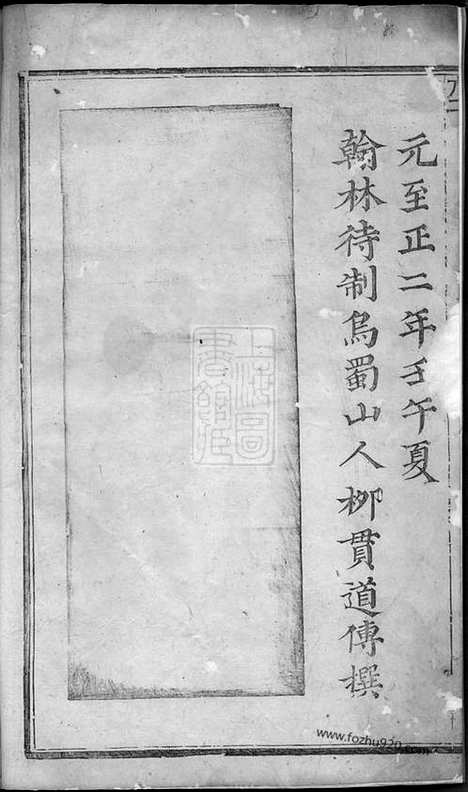 元至正二年壬午夏
翰林待制烏蜀山人柳貫道傳撰
上海圖書館藏
www.fozhu920.com